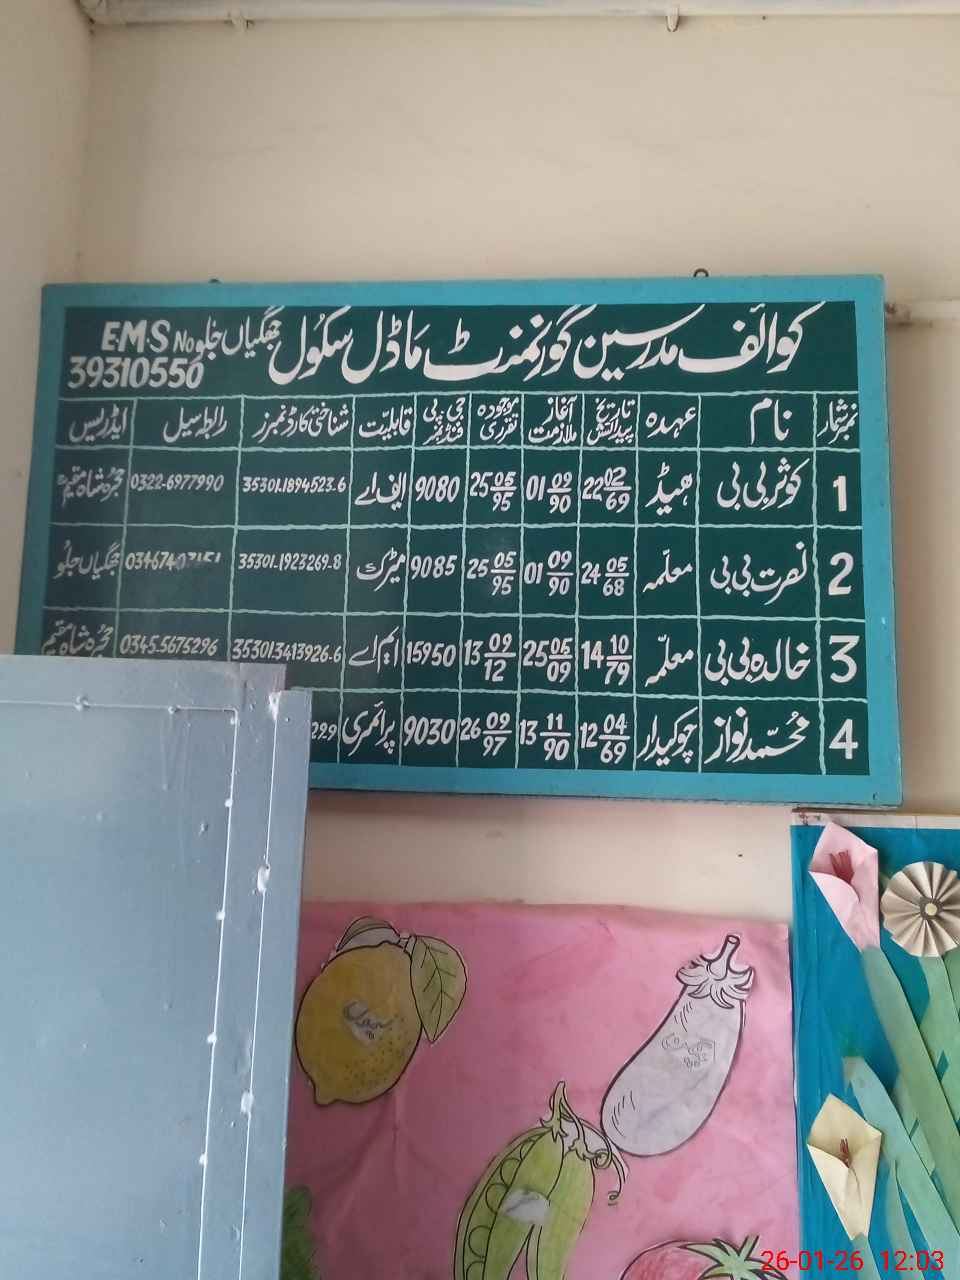 کوائف مدرسین گورنمنٹ ماڈل سکول جھگیاں جلو E.M.S No 39310550
نمبر شمار نام عہدہ تاریخ پیدائش آغاز ملازمت موجودہ تقرری جی پی فنڈ نمبر قابلیت شناختی کارڈ نمبرز رابطہ سیل ایڈریس
1 کوثر بی بی ہیڈ 22 02/69 01 09/90 25 05/95 9080 ایف اے 35301.1894523.6 0322-6977990 حجرہ شاہ مقیم
2 نصرت بی بی معلمہ 24 05/68 01 09/90 25 05/95 9085 میٹرک 35301.1923269.8 034674 جھگیاں جلو
3 خالدہ بی بی معلمہ 14 10/79 25 05/09 13 09/12 15950 ایم اے 35301.3413926.6 0345.5675296 حجرہ شاہ مقیم
4 محمد نواز چوکیدار 12 04/69 13 11/90 26 09/97 9030 پرائمری 29.9
26-01-26 12:03